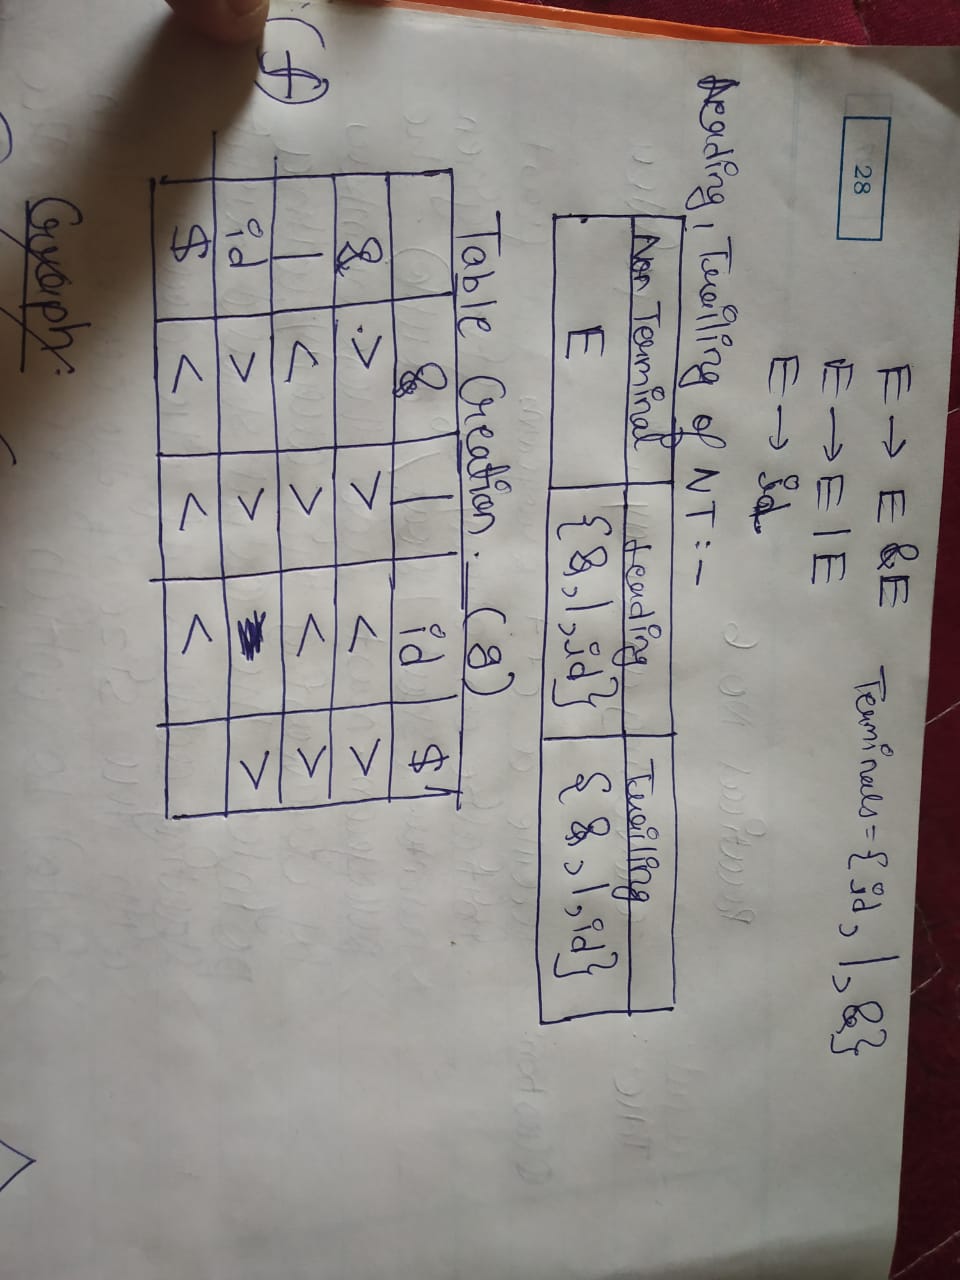 28
E → E &E Terminals = {id, |, &}
E → E | E
E → id
Leading, Trailling of NT :-
Non Terminal Leading Trailling
E {&, |, id} {&, |, id}
Table Creation. (g)
(f)
& | id $
& ·> > < >
| < > < >
id > > >
$ < < <
Graph: